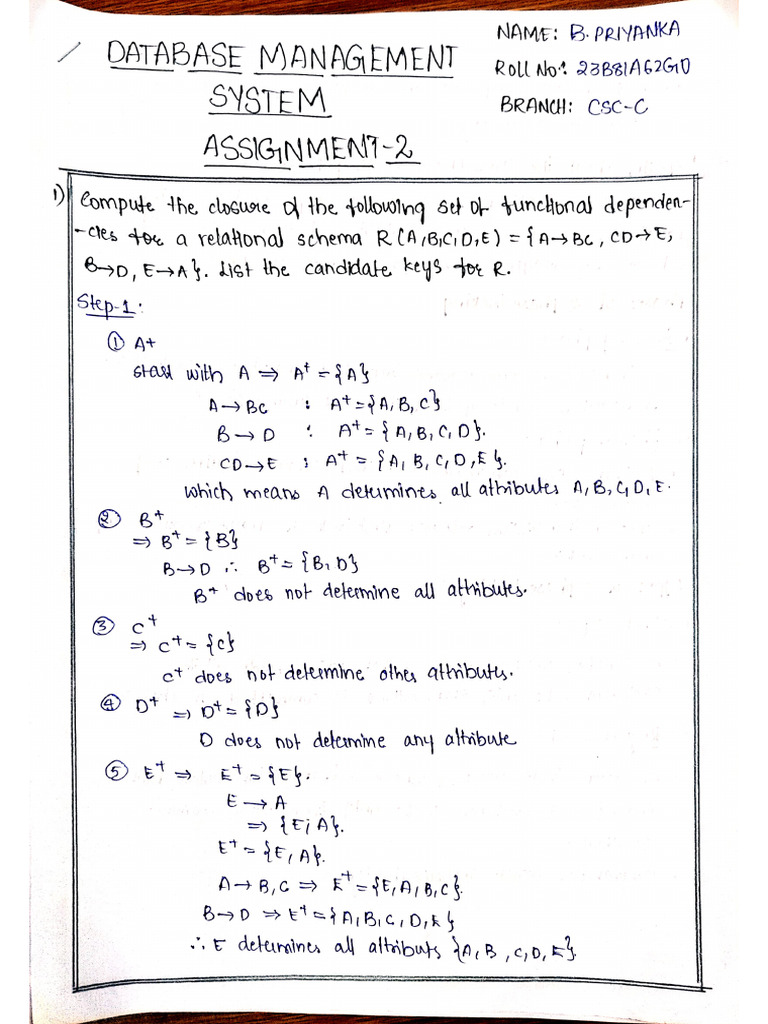 DATABASE MANAGEMENT
SYSTEM
ASSIGNMENT-2
NAME: B. PRIYANKA
ROLL No: 23B81A62G0
BRANCH: CSC-C
1) Compute the closure of the following set of functional dependen-
-cies for a relational schema R(A,B,C,D,E) = {A→BC, CD→E,
B→D, E→A}. List the candidate keys for R.
Step-1:
① A+
start with A ⇒ A+ = {A}
A→BC : A+ = {A, B, C}
B→D : A+ = {A, B, C, D}.
CD→E : A+ = {A, B, C, D, E}.
which means A determines all attributes A, B, C, D, E.
② B+
⇒ B+ = {B}
B→D ∴ B+ = {B, D}
B+ does not determine all attributes.
③ C+
⇒ C+ = {C}
C+ does not determine other attributes.
④ D+ ⇒ D+ = {D}
D does not determine any attribute
⑤ E+ ⇒ E+ = {E}.
E → A
⇒ {E, A}.
E+ = {E, A}.
A→B, C ⇒ E+ = {E, A, B, C}.
B→D ⇒ E+ = {A, B, C, D, E}
∴ E determines all attributs {A, B, C, D, E}.